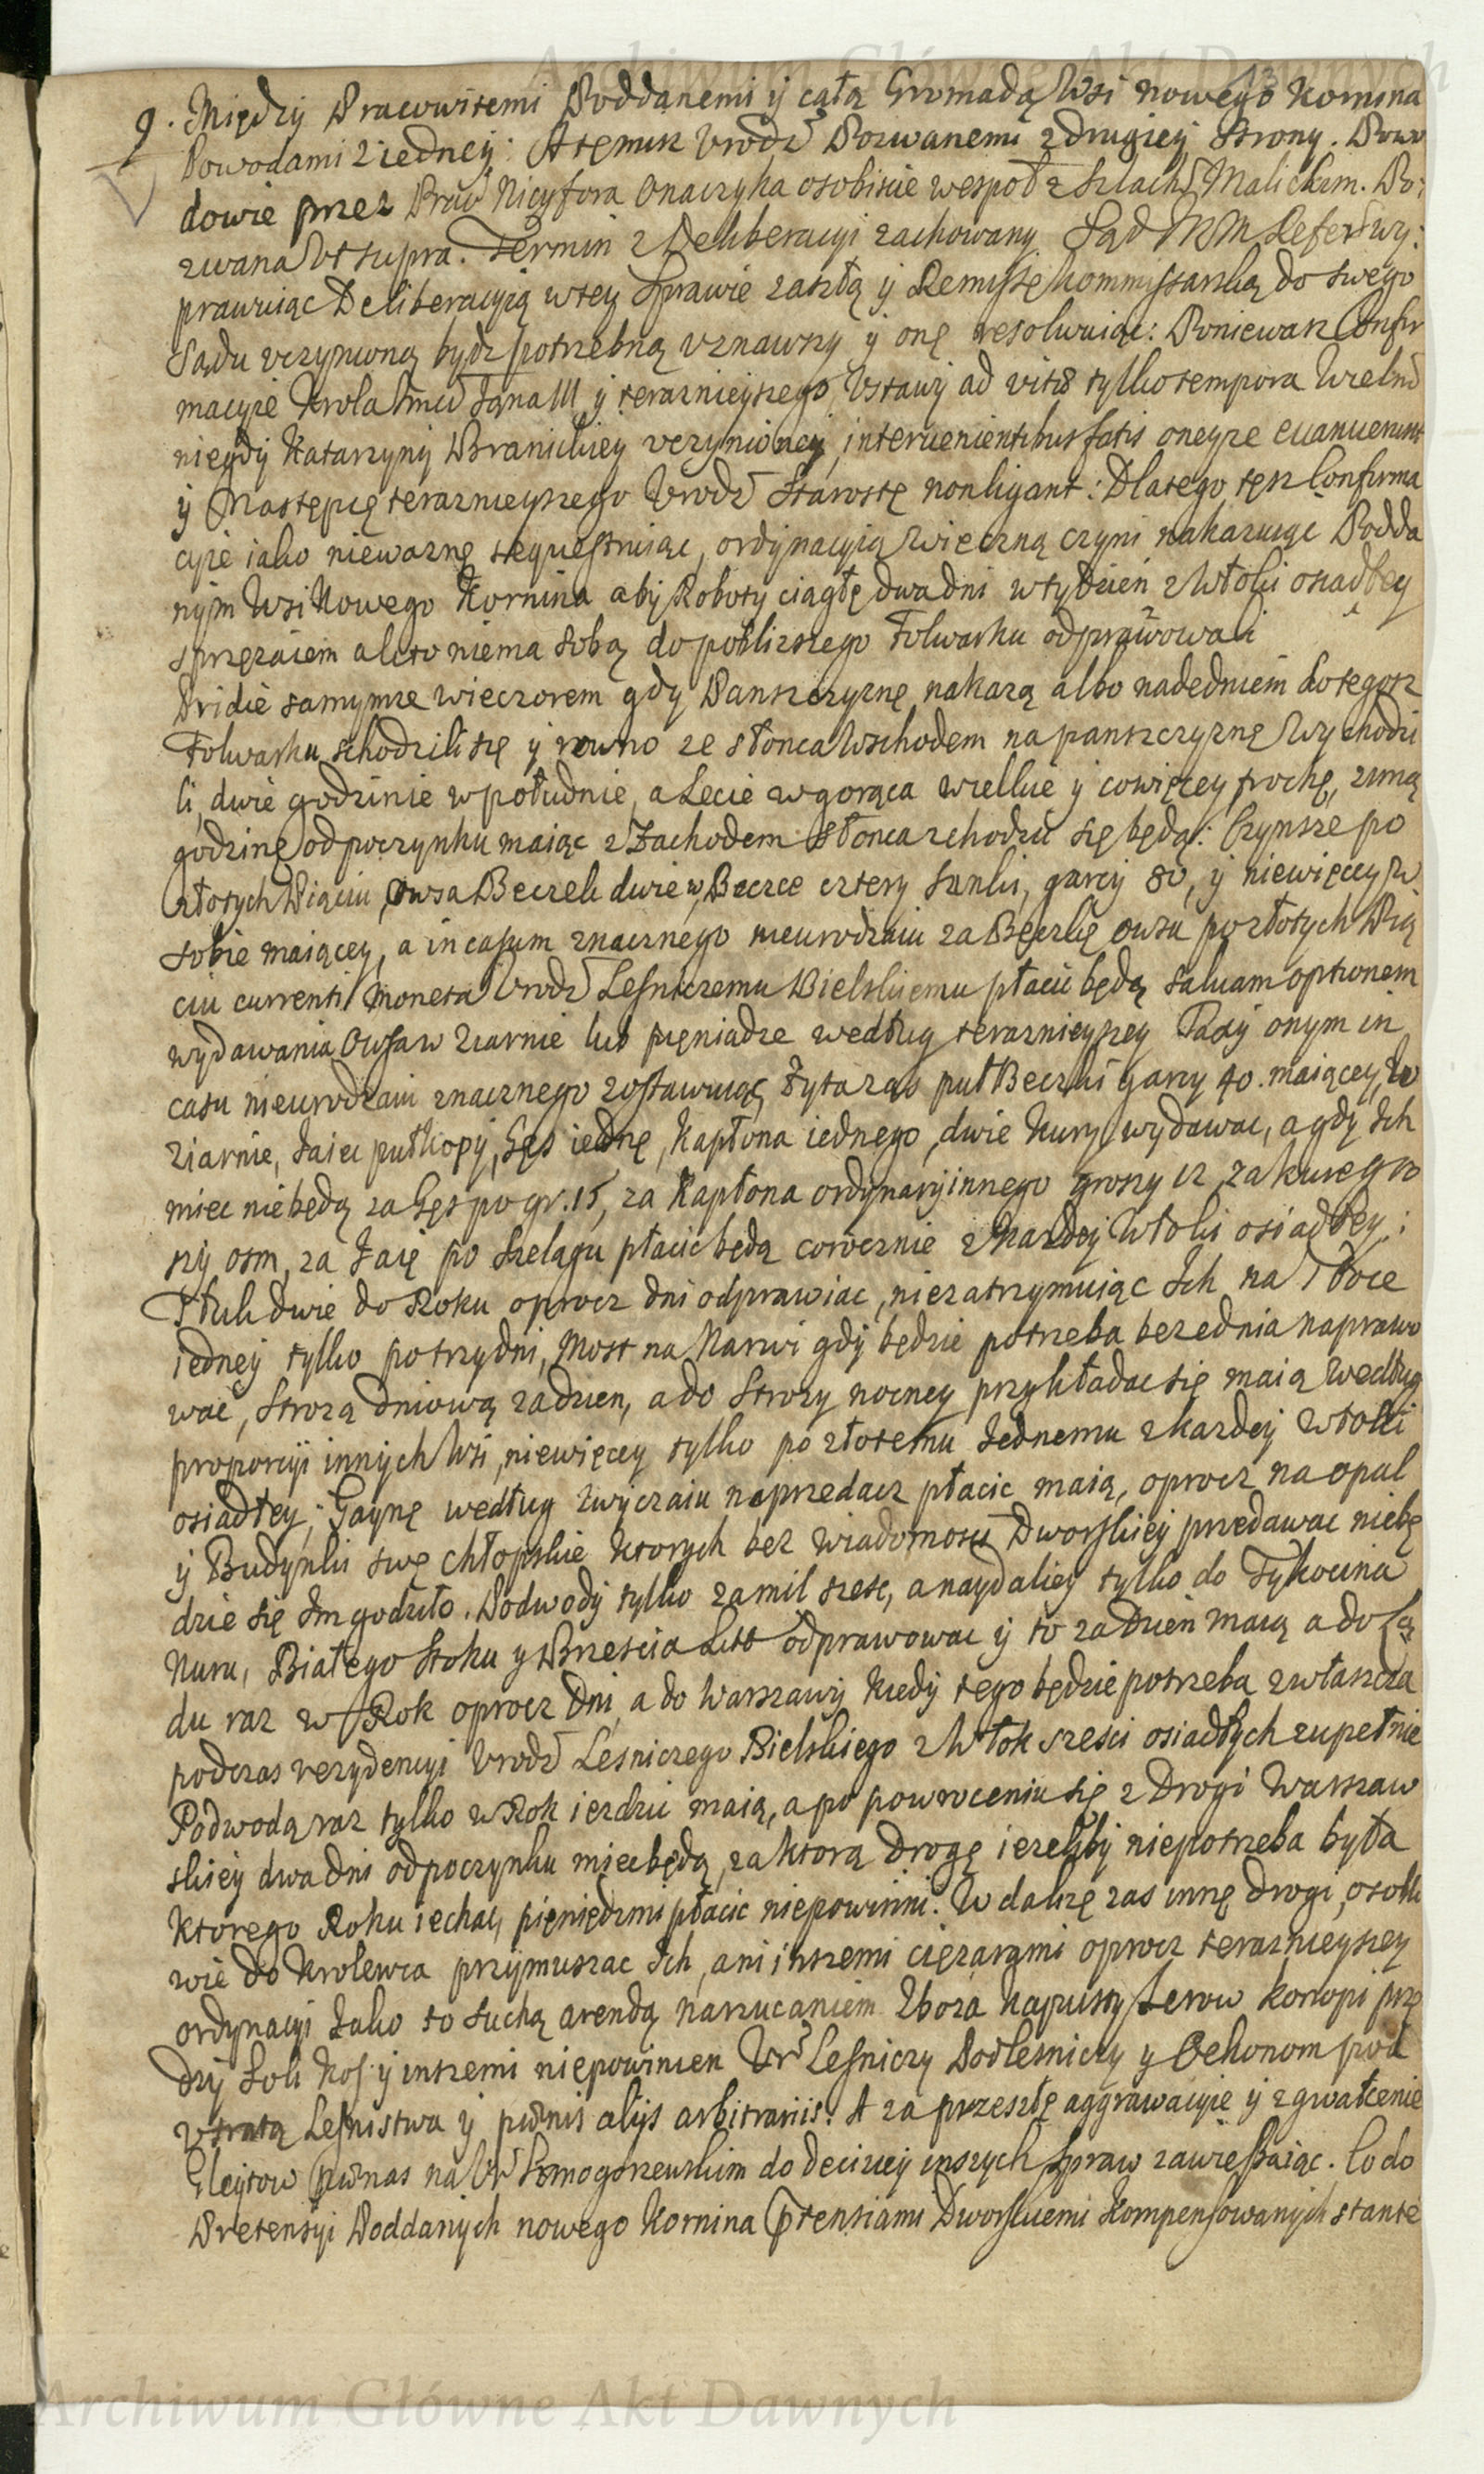 Archiwum Główne Akt Dawnych
13
9. Między Pracowitemi Poddanemi ÿ całą Gromadą Wsi nowego Kornina
Powodami z iedneÿ: A tęmuż Urodz Pozwanemi z drugieÿ Strony. Powo
dowie przez Prac Nicyfora Onaczyka osobiscie wespoł z Szlach Malickim. Po:
zwana Ut supra. Termin z Deliberacyi zachowany Sąd JKM Refer wy:
prawuiąc Deliberacyią w tey Sprawie zaszłą ÿ Remissę Kommissarską do swego
Sądu uczynioną bydz potrzebną uznawszy ÿ onę resolwuiąc: Poniewasz Confir
macyie Krola Jmci Jana III ÿ terazniejszego Ustawÿ ad vitæ tylko tempora Wielm
niegdÿ Katarzynÿ Branickieÿ uczynioneÿ, intervenientibus fatis oneyze evanuerunt
ÿ Nastepcę terazniejszego Urodz Starostę non ligant: Dlatego tesz Confirma
cyie iako niewaznę sequestruiąc, ordynacyią wieczną czyni nakazuiąc Podda
nÿm Wsi Nowego Kornina abÿ Robotÿ ciągłę dwa dni w tydzien z Włoki osiadłey
sprzęzaiem a kto niema sobą do poblizszego Folwarku odprawowali
Pridie samymze wieczorem gdy Panszczyznę nakazą albo nadedniem do tegosz
Folwarku schodzili się ÿ rowno ze słonca Wschodem na panszczyznę Wychodzi
li, dwie godzinie w południe, a Lecie w gorąca wielkie ÿ cowięcey trochę, zimą
godzinę odpoczynku maiąc z Zachodem słonca zchodzic się będą: Czynsze po
złotych Pięciu, owsa Beczek dwie w Beczce cztery szanki, garcy 80, ÿ niewięcey w
sobie maiącey, a in casum znacznego nieurodzaiu za Beczkę owsa po złotych Pię
ciu currenti Moneta Urodz Lesniczemu Bielskiemu płacic będą salvam optionem
wydawania Owsa w ziarnie lub pieniądze według terazniejszey Taxÿ onym in
casu nieurodzaiu znacznego zostawuiąc Zyta zas puł Beczki garcy 40. maiącey, w
ziarnie, Jaiec pułkopÿ, Gęs iednę, Kapłona iednego, dwie Kury wydawac, a gdy Ich
miec niebędą za Gęs po gr. 15, za Kapłona ordynaryinnego groszy 12 za kurę gro
szÿ osm, za Jaię po szelągu płacic będą corocznie z kazdeÿ Włoki osiadłey:
Tłuk dwie do Roku oprocz dni odprawiac, niezatrzymuiąc Ich na Tłoce
iedneÿ tylko po trzy dni, Most na Narwi gdÿ będzie potrzeba beze dnia naprawo
wac, Strozą dniową za dzien, a do Strozy nocney przykładac się maią Według
proporcyi innych Wsi, niewięcey tylko po złotemu Jednemu z kazdeÿ Włoki
osiadłey; Gaynę według zwyczaiu na przedasz płacic maią, oprocz na opał
ÿ Budynki swę chłopskie Ktorych bez Wiadomosci Dworskieÿ przedawac niebę
dzie się Im godziło. Podwodÿ tylko za mil szesc, a naydaliey tylko do Tykocina
Nuru, Białego Stoku y Brzescia Litt odprawowac ÿ to za Dzien maią a do Są
du raz w Rok oprocz Dni, a do Warszawÿ kiedÿ tego będzie potrzeba zwłaszcza
podczas rezydencyi Urodz Lesniczego Bielskiego z Włok szesci osiadłych zupełnie
Podwodą raz tylko w Rok iezdzic maią, a po powroceniu się z Drogi Warszaw
skieÿ dwa dni odpoczynku miec będą, za ktorą Drogę iezelibÿ niepotrzeba była
Ktorego Roku iechac, pieniędzmi płacic niepowinni. W dalszę zas innę Drogi, osobli
wie do Krolewca przÿmuszac Ich, ani inszemi ciężarami oprocz terazniejszey
ordynacyi Jako to suchą arendą narzucaniem Zboza Kapusty Serow Konopi przę
dzÿ Soli Kos ÿ inszemi niepowinien Ur Lesniczy Podlesniczy y Oekonom pod
utratą Lesnistwa ÿ pœnis alijs arbitrariis. A za przeszłę aggrawacyie ÿ zgwałcenie
Gleytow pœnas na Ur Smogorzewskim do decizieÿ inszych Spraw zawieszaiąc. Co do
Pretensyi Poddanÿch nowego Kornina Ptensiami Dworskiemi Kompensowanych stante
Archiwum Główne Akt Dawnych